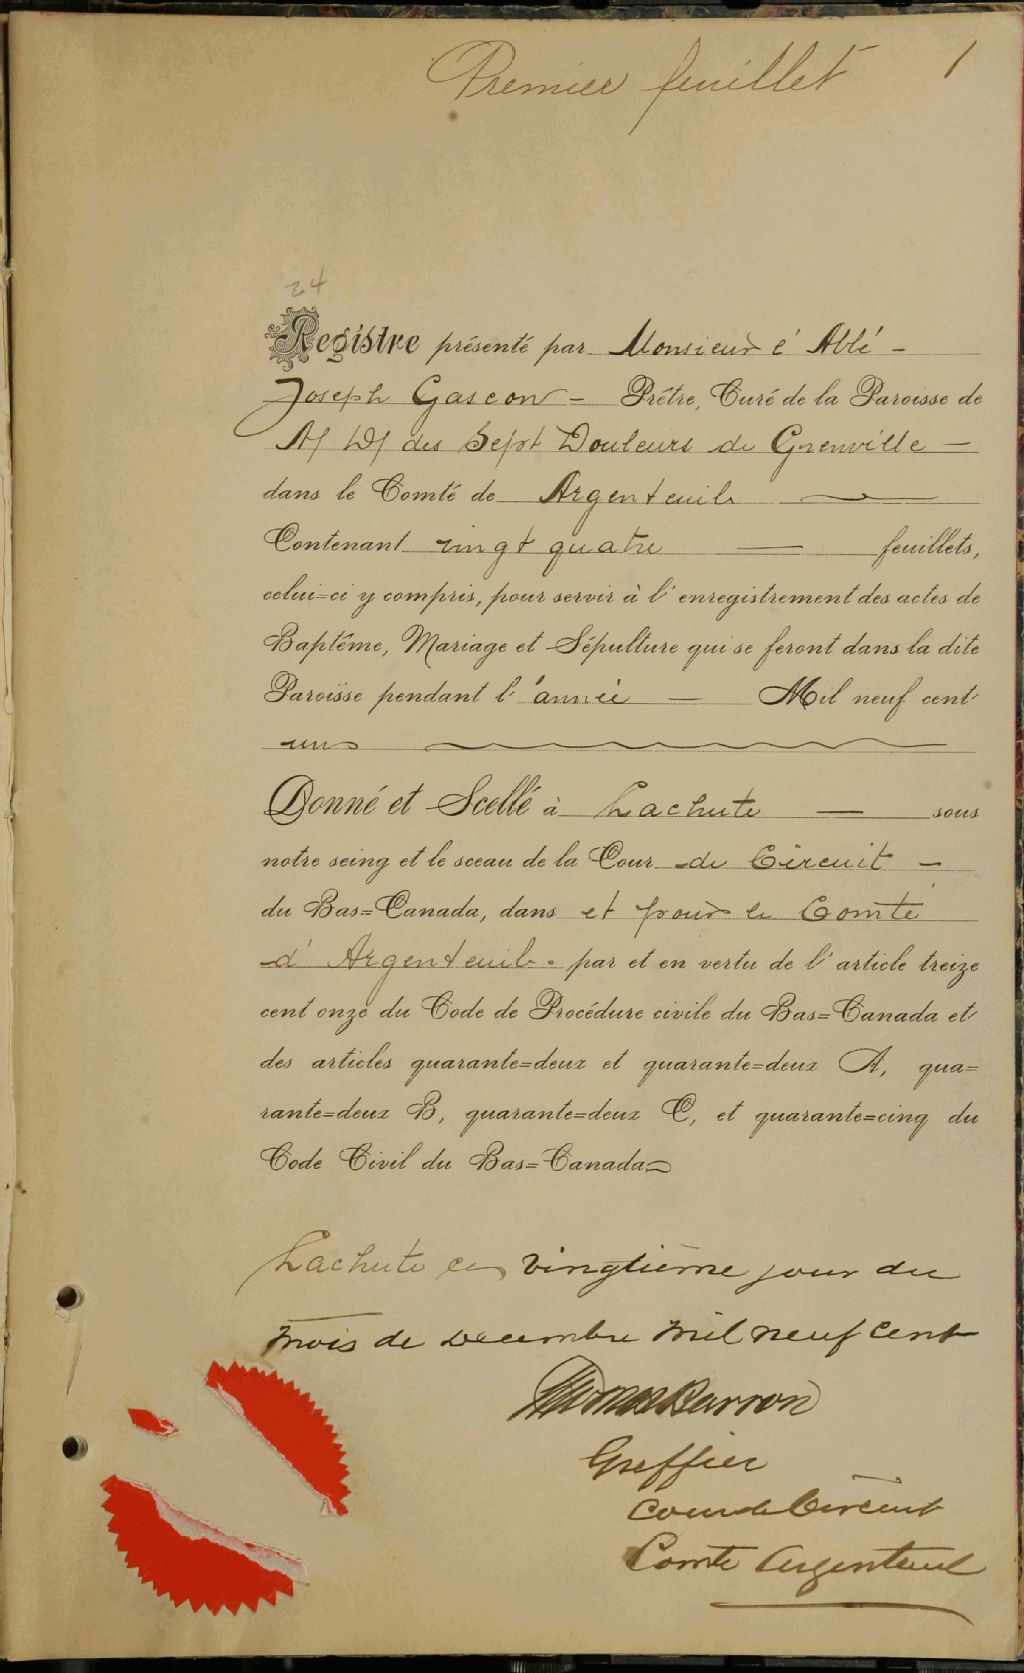 Premier feuillet 1
24
Registre présenté par Monsieur l'Abbé -
Joseph Gascon - Prêtre, Curé de la Paroisse de
N D des Sept Douleurs de Grenville -
dans le Comté de Argenteuil
Contenant vingt quatre - feuillets,
celui=ci y compris, pour servir à l'enregistrement des actes de
Baptême, Mariage et Sépulture qui se feront dans la dite
Paroisse pendant l'année - Mil neuf cent
un
Donné et Scellé à Lachute - sous
notre seing et le sceau de la Cour de Circuit -
du Bas=Canada, dans et pour le Comté
d'Argenteuil. par et en vertu de l'article treize
cent onze du Code de Procédure civile du Bas=Canada et
des articles quarante=deux et quarante=deux A, qua=
rante=deux B, quarante=deux C, et quarante=cinq du
Code Civil du Bas=Canada
Lachute ce vingtième jour du
mois de Decembre mil neuf cent
Thomas Barron
Greffier
Cour de Circuit
Comté Argenteuil